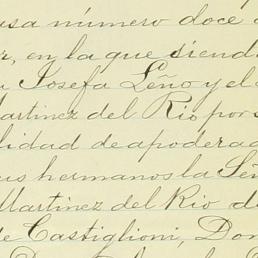 usa número doce
r, en la que siend
a Josefa Leño y el
Martinez del Rio por s
lidad de apoderad
us hermanos la Señ
Martinez del Rio d
e Castiglioni, Don